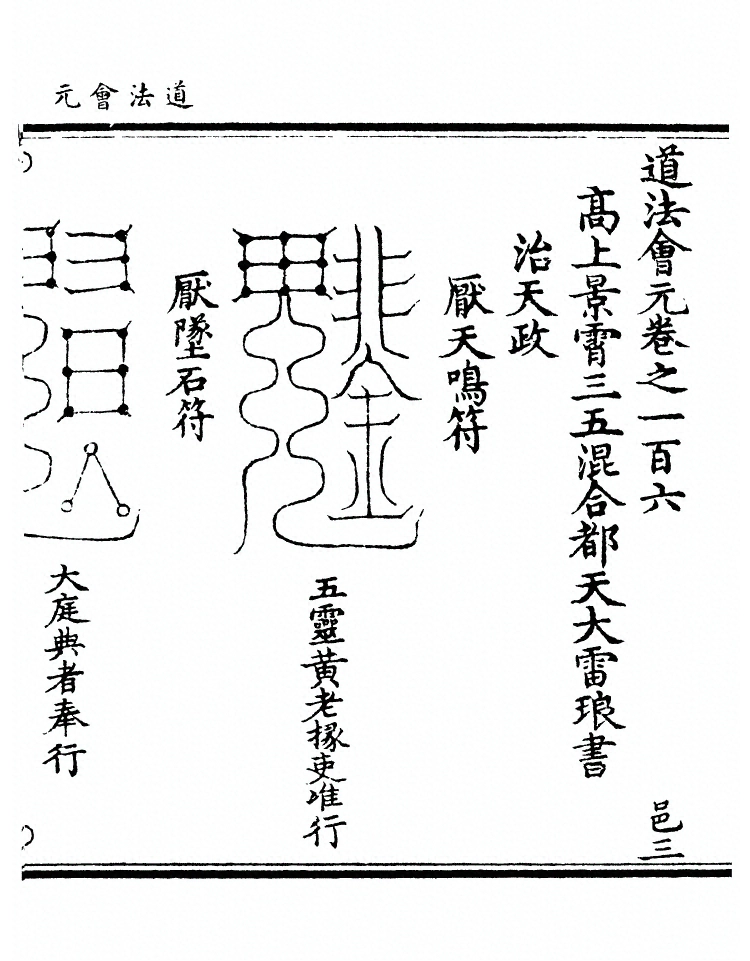 道法會元
道法會元卷之一百六
邑三
高上景霄三五混合都天大雷琅書
治天政
厭天鳴符
五靈黃老掾吏准行
厭墜石符
大庭典者奉行